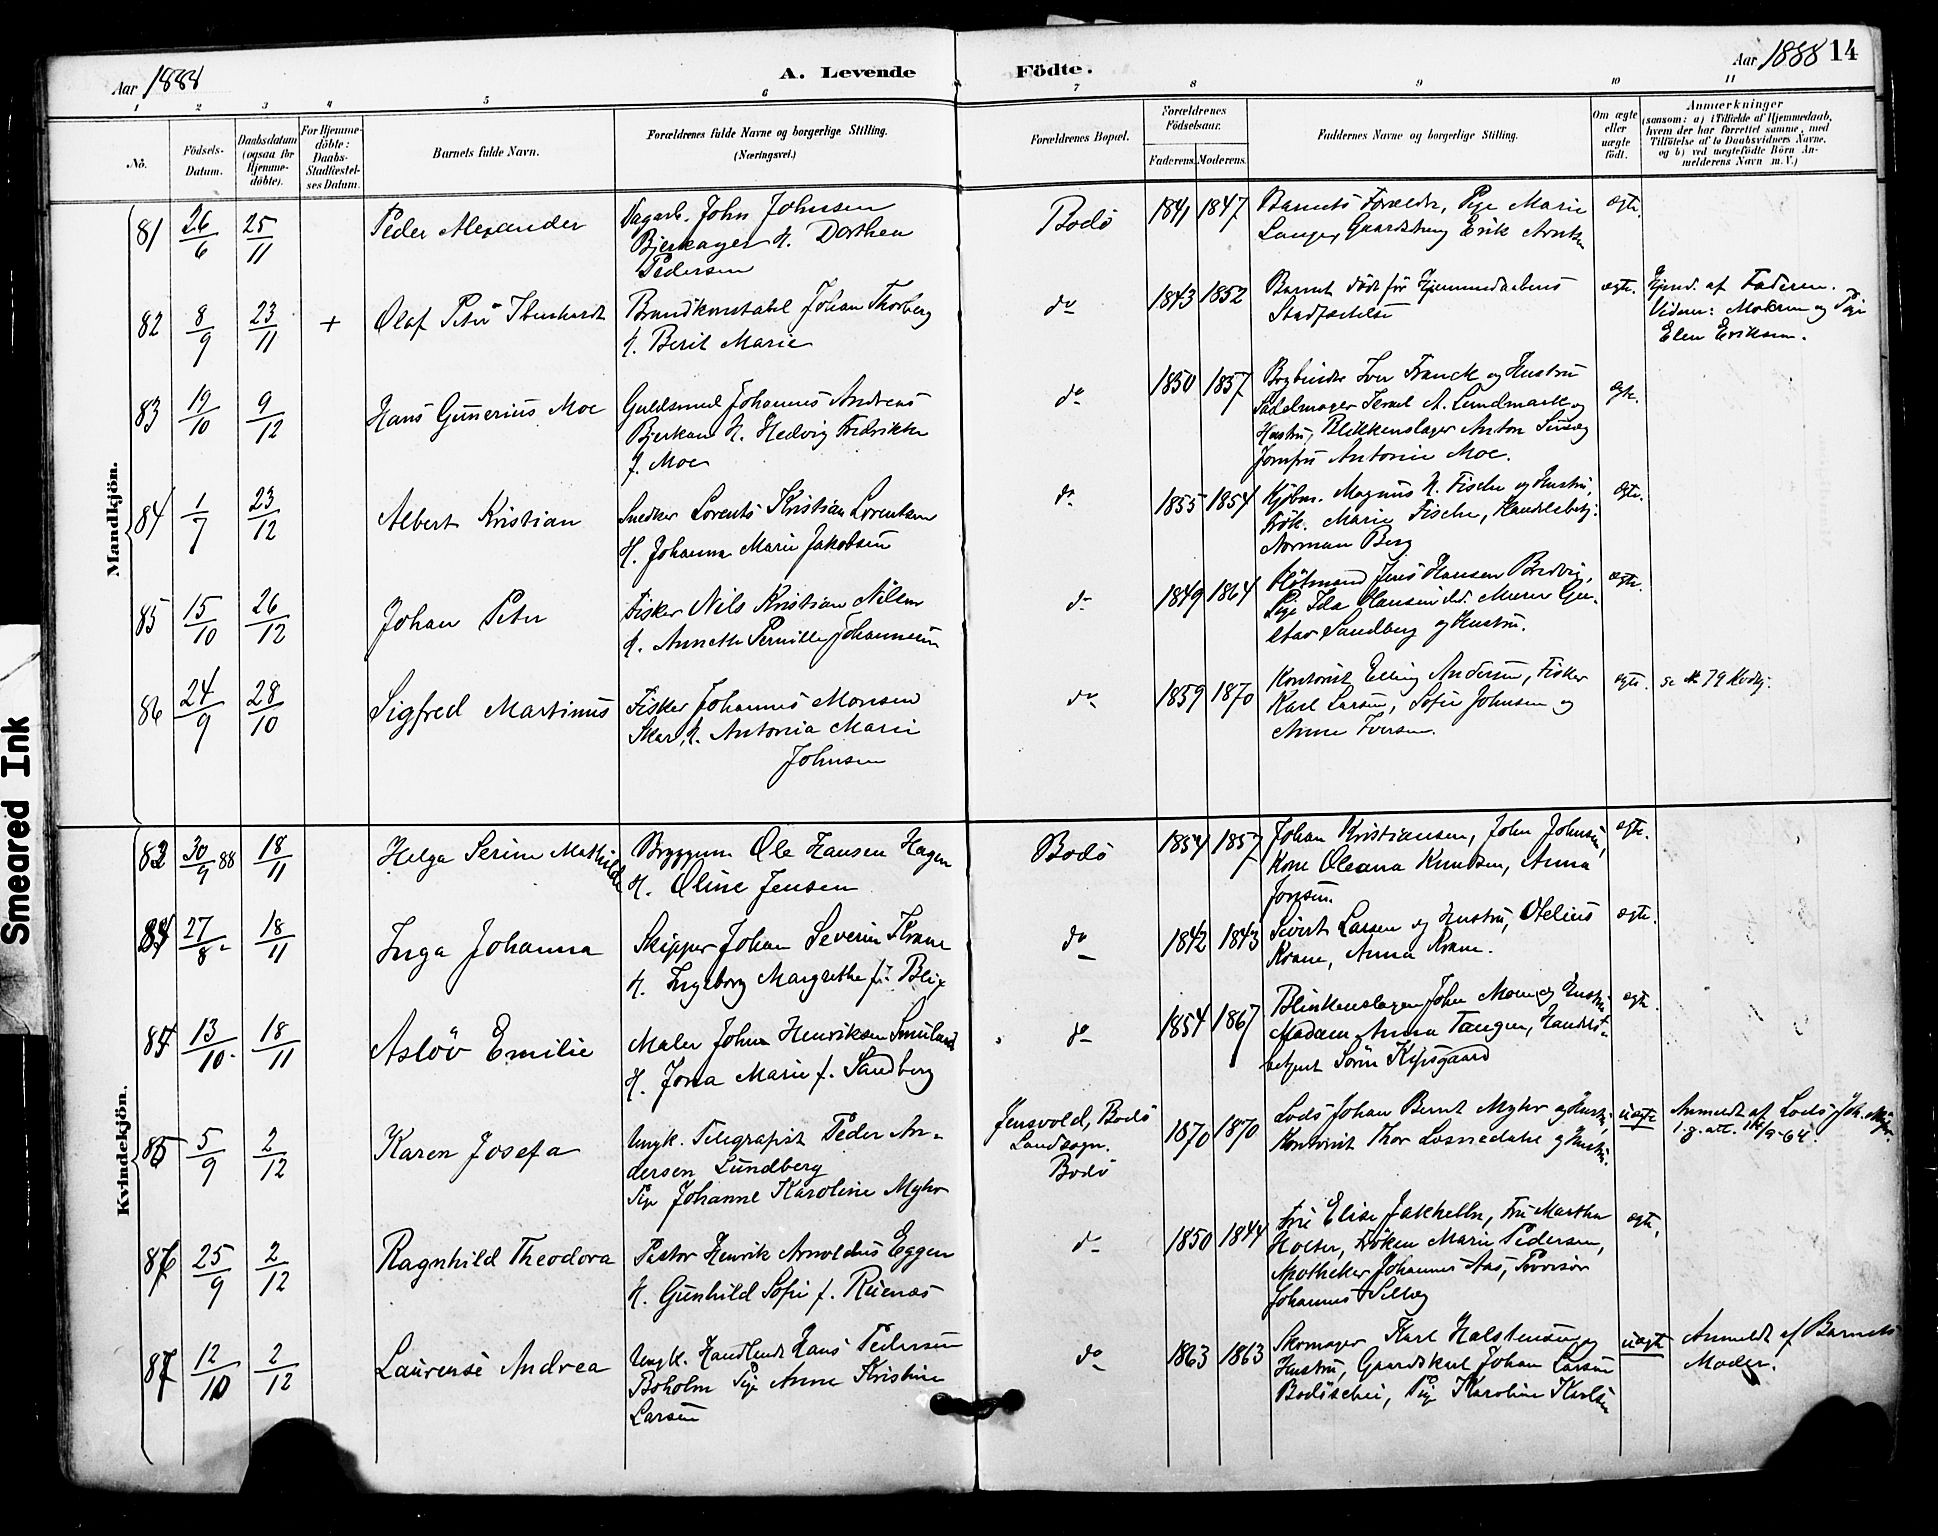 Aar 1888
A. Levende
Födte.
Aar 1888
14
1
2
3
4
5
6
7
8
9
10
11
No.
Födsels-
Datum.
Daabsdatum
(ogsaa for
Hjemme-
döbte).
For Hjemme-
döbte:
Daabs-
Stadfæstel-
ses Datum.
Barnets fulde Navn.
Forældrenes fulde Navne og borgerlige Stilling.
(Næringsvei.)
Forældrenes Bopæl.
Forældrenes
Födselsaar.
Faderens.
Moderens.
Faddernes Navne og borgerlige Stilling.
Om ægte
eller
uægte
født.
Anmærkninger
(saasom: a) i Tilfælde af Hjemmedaab,
hvem der har forrettet samme, med
Tilföielse af to Daabsvidners Navne,
og b) ved uægtefödte Börn An-
melderens Navn m. V.)
Mandkjön.
81 26/6 25/11 Peder Alexander
Dagarb. John Johnsen
Bjerkager H. Dorthea
Pedersen
Bodö 1841 1847
Barnets Forældr, Pige Marie
Lange, Gaardsbrug Erik
ægte.
82 8/9 23/11 + Olaf Peter
Brandkonstabel Johan Thorberg
H. Berit Marie
do 1843 1852
Barnet död för Hjemmedaabens
Stadfæstelse
ægte.
Hjemd. af Faderen.
Vidner: Moderen og Pige
Elen Eriksen.
83 19/10 9/12 Hans Gunerius Moe
Guldsmed Johannes Andreas
Bjerkan H. Hedvig Fredrikke
f. Moe
do 1850 1857
Bogbinder Iver Franck og Hustru
Sadelmager A. Lundmark og
Hustru, Blikkenslager Anton
Jomfru Antonie Moe.
ægte.
84 1/7 23/12 Albert Kristian
Snedker Lorents Kristian Lorentsen
H. Johanna Marie Jakobsen
do 1855 1854
Kjöbm. Magnus N. Fische og Hustru,
Frök. Marie Fische, Handelsbetj.
Norman Berg
ægte.
85 15/10 26/12 Johan Peter
Fisker Nils Kristian Nilsen
H. Annette Pernille Johannesen
do 1849 1864
Jens Hansen
Pige Ida Hansen Murer Gu-
stav Sandberg og Hustru.
ægte.
86 24/9 28/10 Sigfred Martinus
Fisker Johannes Monsen
Skar, H. Antonia Marie
Johnsen
do 1859 1870
Kontorist Elling Andersen, Fisker
Karl Larsen, Sofie Johnsen og
Anne Iversen.
ægte.
se No 79 Kvdkj.
Kvindekjön.
82 30/9 88 18/11 Helga Serine Mathilde
Bryggem. Ole Hansen Hagen
H. Oline Jensen
Bodö 1854 1857
Johan Kristiansen, John Johnsen,
Kone Oleana Knudsen, Anna
Jonsen.
ægte.
27/8 18/11 Inga Johanna
Skipper Johan Severin Krane
H. Ingeborg Margrethe f. Blix
do 1842 1843
Sivert Larsen og Hustru, Otelius
Krane, Anna Krane.
ægte.
13/10 18/11 Aslöv Emilie
Maler Johan Henriksen
H. Jona Marie f. Sandberg
do 1854 1867
Blikkenslager John Moe og Hustru
Madam Anna Tangen, Handels-
betjent Sörin
ægte.
5/9 2/12 Karen Josefa
Ungk. Telegrafist Peder An-
dersen Lundberg
Pige Johanne Karoline Myhr
Jensvold, Bodö
Landsogn.
Bodö
1870 1870
Lods Johan Bernt Myhr og Hustru,
Kontorist Thor Losnedahl og Hustru.
uægte
Anmeldt af Lods Joh. Myhr.
25/9 2/12 Ragnhild Theodora
Pastor Henrik Arnoldus Eggen
H. Gunhild Sofie f.
do 1850 1844
Fru Elise Jakhelln, Fru Martha
Holter, Fröken Marie Pedersen,
Apotheker Johannes Aas, Provisor
Johannes
ægte,
87 12/10 2/12 Laurense Andrea
Ungk. Handlende Hans Pedersen
Boholm Pige Anne Kristine
Larsen
do 1863 1863
Skomager Karl Halstensen og
Hustru, Gaardskarl Johan Larsen
Pige Karoline Karlsen
uægte
Anmeldt af Barnets
Moder.
Smeared Ink